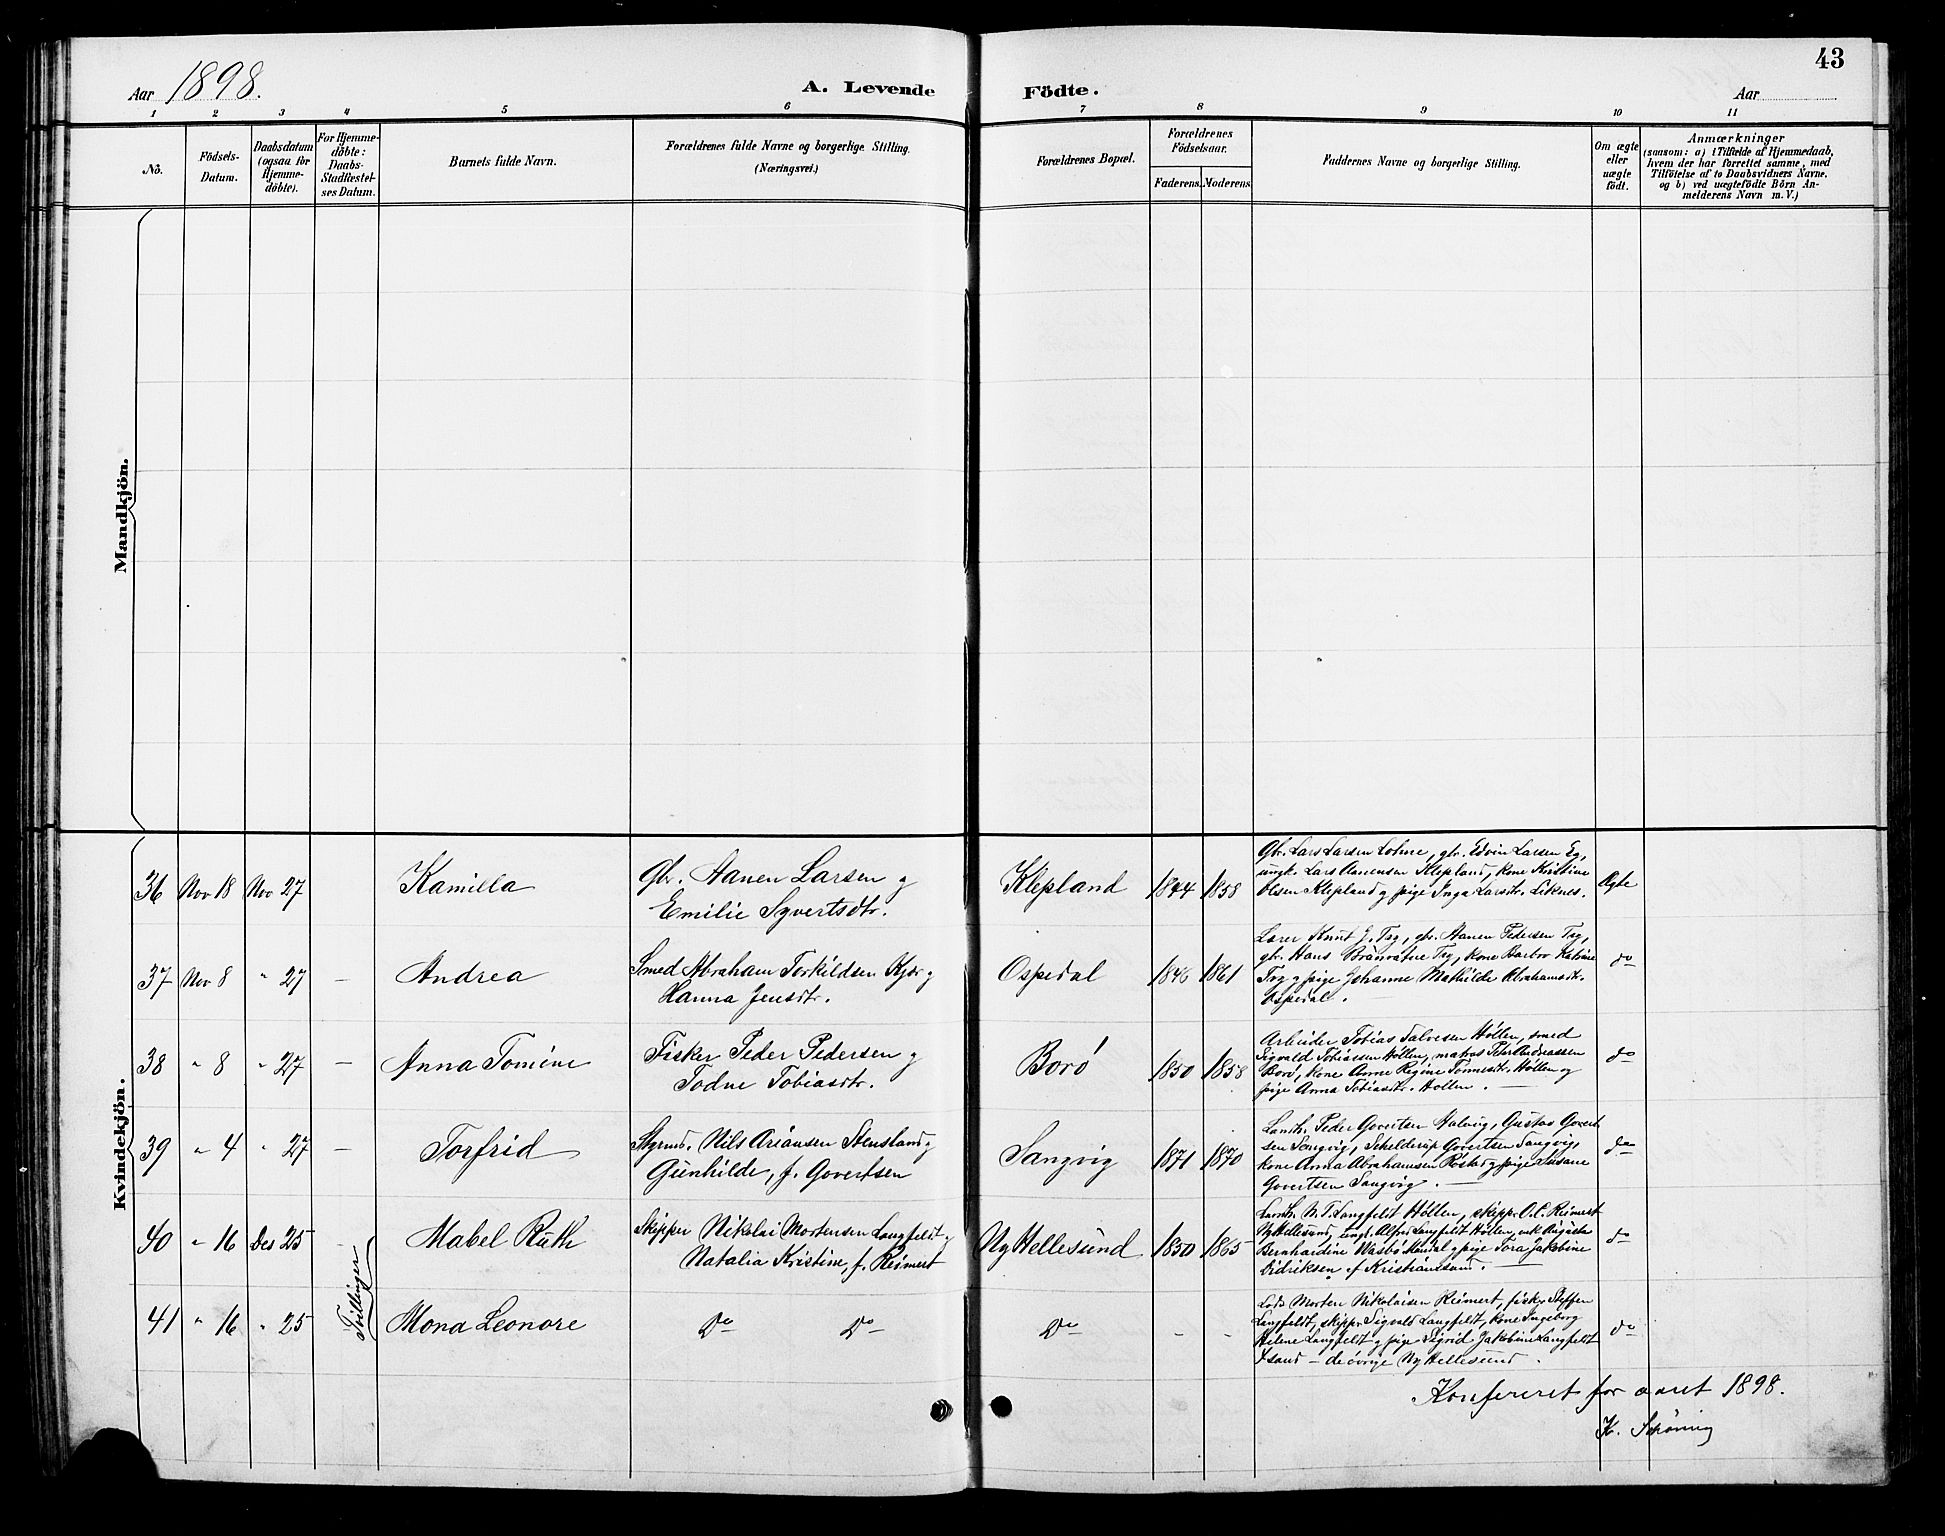 43
Aar 1898.
A. Levende Födte.
Aar
1 2 3 4 5 6 7 8 9 10 11
No.
Födsels-
Datum.
Daabsdatum
(ogsaa for
Hjemme-
döbte).
For Hjemme-
döbte:
Daabs-
Stadfæstel-
ses Datum.
Barnets fulde Navn.
Forældrenes fulde Navne og borgerlige Stilling.
(Næringsvei.)
Forældrenes Bopæl.
Forældrenes
Födselsaar.
Faderens. Moderens.
Faddernes Navne og borgerlige Stilling.
Om ægte
eller
uægte
födt.
Anmærkninger
(saasom: a) i Tilfælde af Hjemmedaab,
hvem der har forrettet samme, med
Tilföielse af to Daabsvidners Navne.
og b) ved uægtefödte Börn An-
melderens Navn m. V.)
Mandkjön.
Kvindekjön.
36 Nov 18 Nov 27 Kamilla
Gbr. Aanen Larsen g
Emilie Syvertsdtr.
Klepland 1844 1858
Gbr. Lars Larsen Lohne, gbr. Edvin Larsen Eg,
ungk. Lars Aanensen Klepland, kone Kristine
Olsen Klepland g pige Inga Larsdtr. Liknes.
Ægte
37 Nov 8 " 27 — Andrea
Smed Abraham Torkildsen Kjær g
Hanna Jensdtr.
Ospedal 1846 1861
Lærer Knut J. Try, gbr. Aanen Pedersen Try,
gbr. Hans Try, kone Barbro Katrine
Try g pige Johanne Mathilde Abrahamsdt.
Ospedal.
do
38 " 8 " 27 — Anna Tomine
Fisker Peder Pedersen g
Todne Tobiasdtr.
Borö 1850 1858
Arbeider Tobias Salvesen Höllen, smed
Sigvald Tobiassen Höllen, matros Peder Andreassen
Borö, kone Anne Regine Tönnesdtr. Höllen og
pige Anna Tobiasdtr. Höllen. —
do
39 " 4 " 27 — Torfrid
Styrmd. Nils Ariansen Stensland g
Gunhilde, f. Govertsen
Sangvig 1871 1870
Landh. Peder Govertsen Valvig, Gustav Govert
sen Sangvig, Schelderup Govertsen Sangvig,
kone Anna Abrahamsen g pige Susane
Govertsen Sangvig. —
do
40 " 16 Des 25 Mabel Ruth
Skipper Nikolai Mortensen Langfeldt g
Natalia Kristine, f. Reimert
Ny Hellesund 1850 1865
Landh. N. T. Langfeldt Höllen, skipper O. C. Reimert
Ny Hellesund, ungk. Alfred Langfeldt Höllen,
Bernhardine Mandal g pige Tora Jakobine
Didriksen af Kristiansand. —
do
Tvillinger
41 " 16 " 25 Mona Leonore
Do Do Do - -
Lods Morten Nikolaisen Reimert, fisker Steffen
Langfeldt, skipper Sigvald Langfeldt, kone Ingeborg
Helene Langfeldt g pige Sigrid Jakobine Langfeldt
— de övrige Ny Hellesund.
do
Konfereret for aaret 1898.
K. Schöning